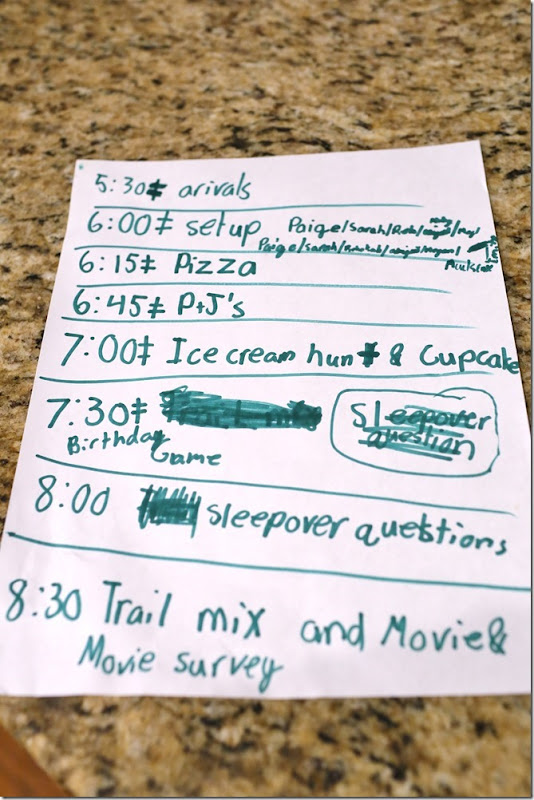 5:30 arivals
6:00 setup Paige/Sarah/
Paige/Sarah/
6:15 Pizza
6:45 P+J's
7:00 Ice cream hunt & Cupcake
7:30
Sleepover
question
Birthday
Game
8:00 sleepover questions
8:30 Trail mix and Movie &
Movie survey